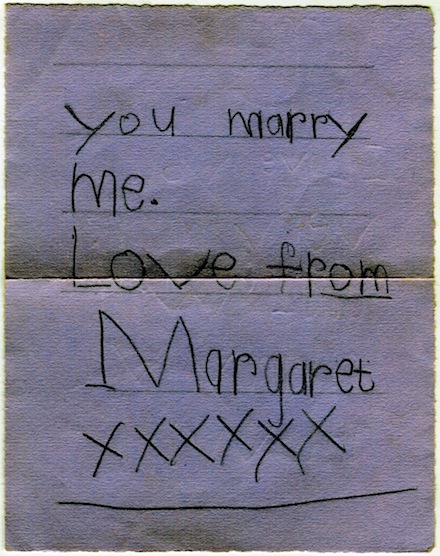 you marry
me.
Love from
Margaret
xxxxxx